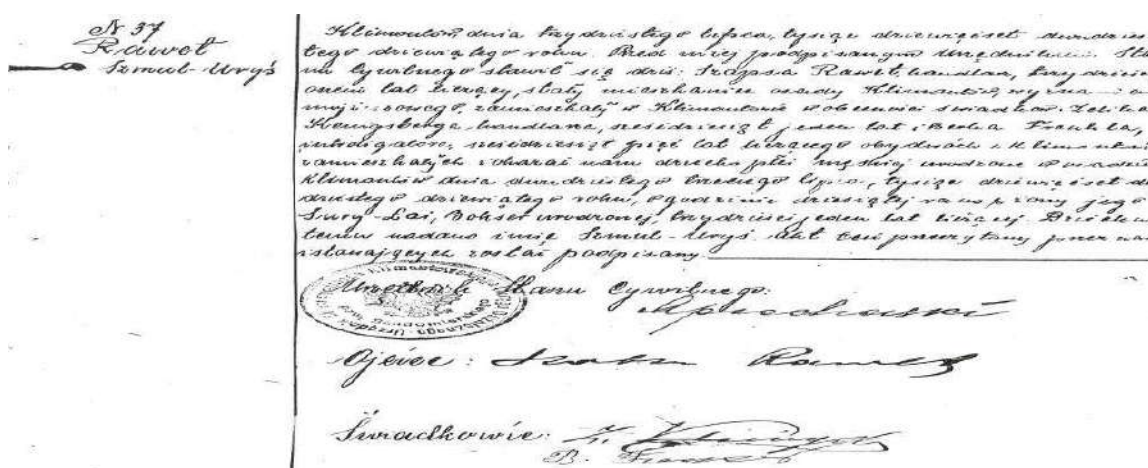 N 37
Rawet
Szmul-Uryś
Klimontów, dnia trzydziestego lipca, tysiąc dziewięćset dwudzies
tego dziewiątego roku. Przed niżej podpisanym Urzędnikiem Sta
nu Cywilnego stawił się dziś: Rawet, handlarz, trzydzieści
osiem lat liczący, stały mieszkaniec osady Klimontów, wyznania
mojżeszowego, zamieszkały w Klimontowie w obecności świadków:
handlarza, sześćdziesiąt jeden lat i Berka Frenkla,
introligatora, sześćdziesiąt pięć lat liczącego obydwóch z Klimontowa
zamieszkałych i okazał nam dziecko płci męskiej urodzone w osadzie
Klimontów dnia dwudziestego trzeciego lipca, tysiąc dziewięćset d
dziestego dziewiątego roku, o godzinie dziesiątej rano z żony jego
Sury-Łai, Bokser urodzonej, trzydzieści jeden lat liczącej. Dziecku
temu nadano imię Szmul-Uryś. Akt ten przeczytany przez nas
i stawających został podpisany.
Urzędnik Stanu Cywilnego:
Ojciec: Rawet
Świadkowie:
B.